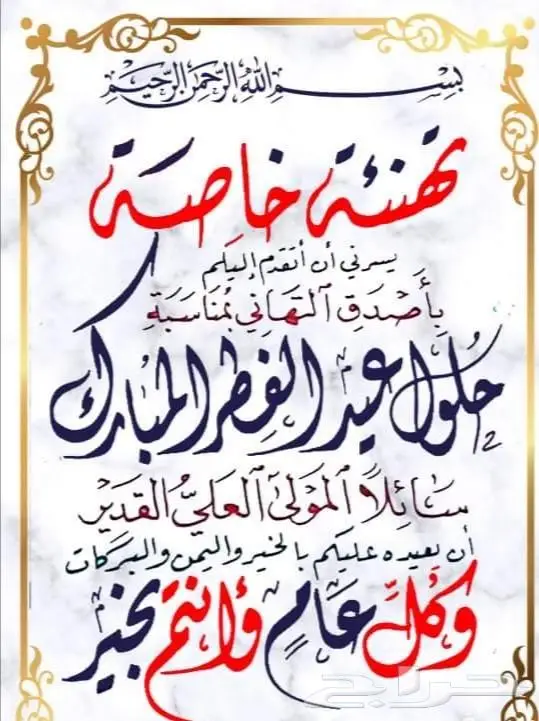 بِسْمِ اللّٰهِ الرَّحْمٰنِ الرَّحِيْمِ
تهنئة خاصة
يسرني أن أتقدم إليكم
بِأَصْدَقِ التَهَانِي بمُنَاسَبَةِ
حُلول عيد الفِطر المُبارك
سَائِلًا المَولَى العَليُّ القَدير
أن يعيده عليكم بالخير واليمن والبركات
وَكُلُّ عَامٍ وَأنتم بخير
حراج